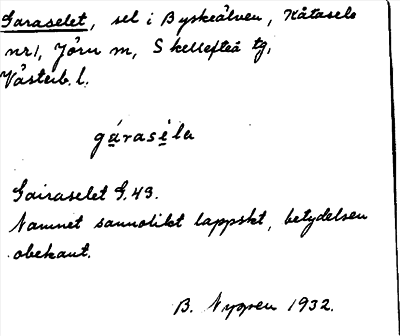 Garaselet, sel i Byskeälven, Kåtasele
nr 1, Jörn sn, Skellefteå tg,
Västerb. l.
gáraséla
Gairaselet G.43.
Namnet sannolikt lappskt, betydelsen
obekant.
B. Nygren 1932.